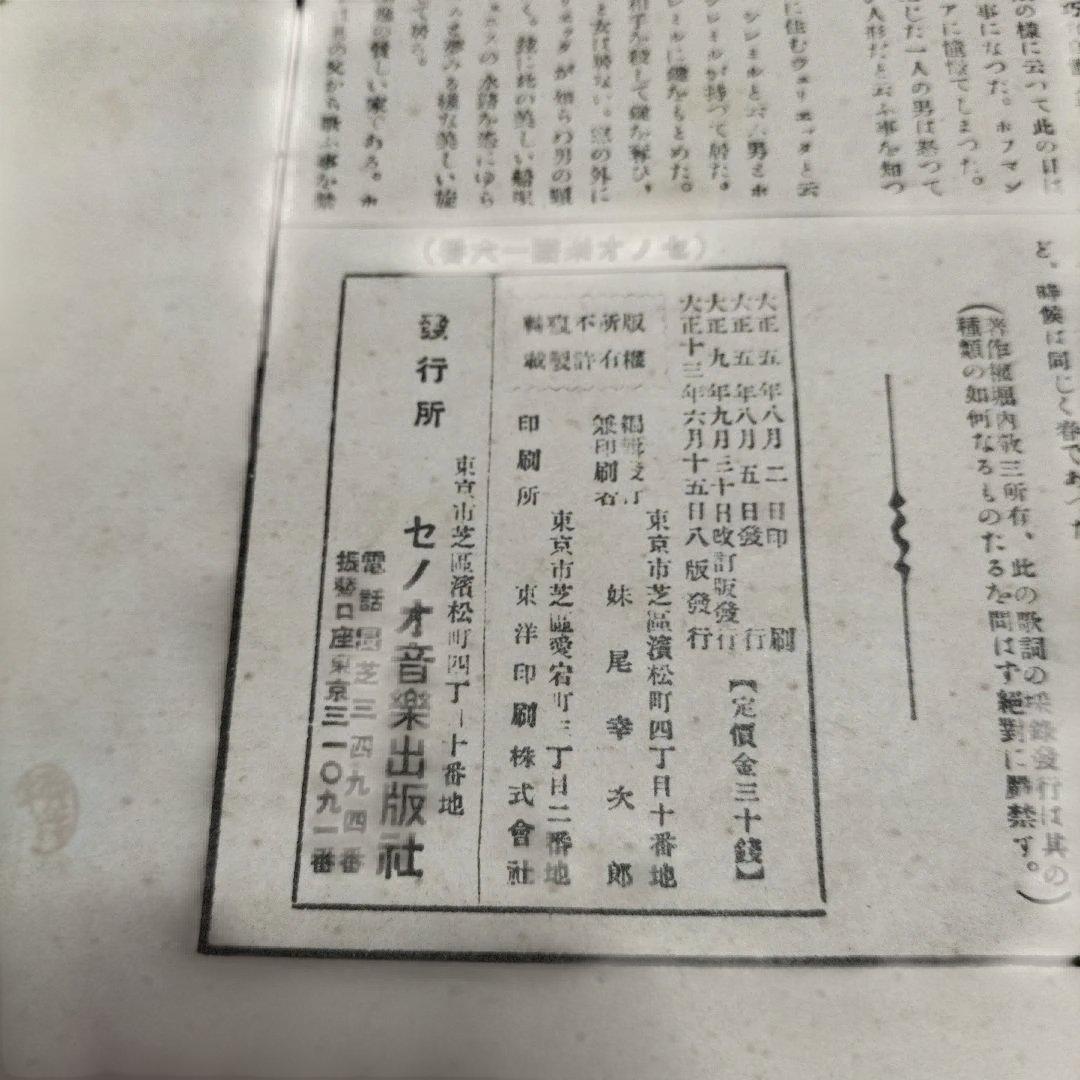 の様に云つて此の日は
事になつた。ホフマン
アに憧憬てしまつた。
じた一人の男は怒つて
の人形だと云ふ事を知つ
に住むヴェリエッタと云
シレミルと云ふ男とホ
レミルが持つて居た。
レミルに鍵をもとめた。
相手を殺して鍵を奪ひ、
と女は居ない。窓の外に
が知らの男の頸
く。後に此の美しい船唄
の水路を恣にゆら
を夢みる様な美しい旋
て居る。
い家である。ホ
から歌ふ事を禁
ど、時候は同じく春であつた
(著作權堀内敬三所有、此の歌詞の採錄發行は其の
種類の如何なるものたるを問はず絕對に嚴禁す。)
(セノオ樂譜一六番)
大正五年八月二日印刷
大正五年八月五日發行
大正九年九月三十日改訂版發行
大正十三年六月十五日八版發行
【定價金三十錢】
版權
所有
不許
複製
轉載
東京市芝區濱松町四丁目十番地
編輯及
兼印刷者
妹尾幸次郎
東京市芝區愛宕町三丁目二番地
印刷所
東洋印刷株式會社
發行所
東京市芝區濱松町四丁目十番地
セノオ音樂出版社
電話芝三四九四番
振替口座東京三一〇九一番